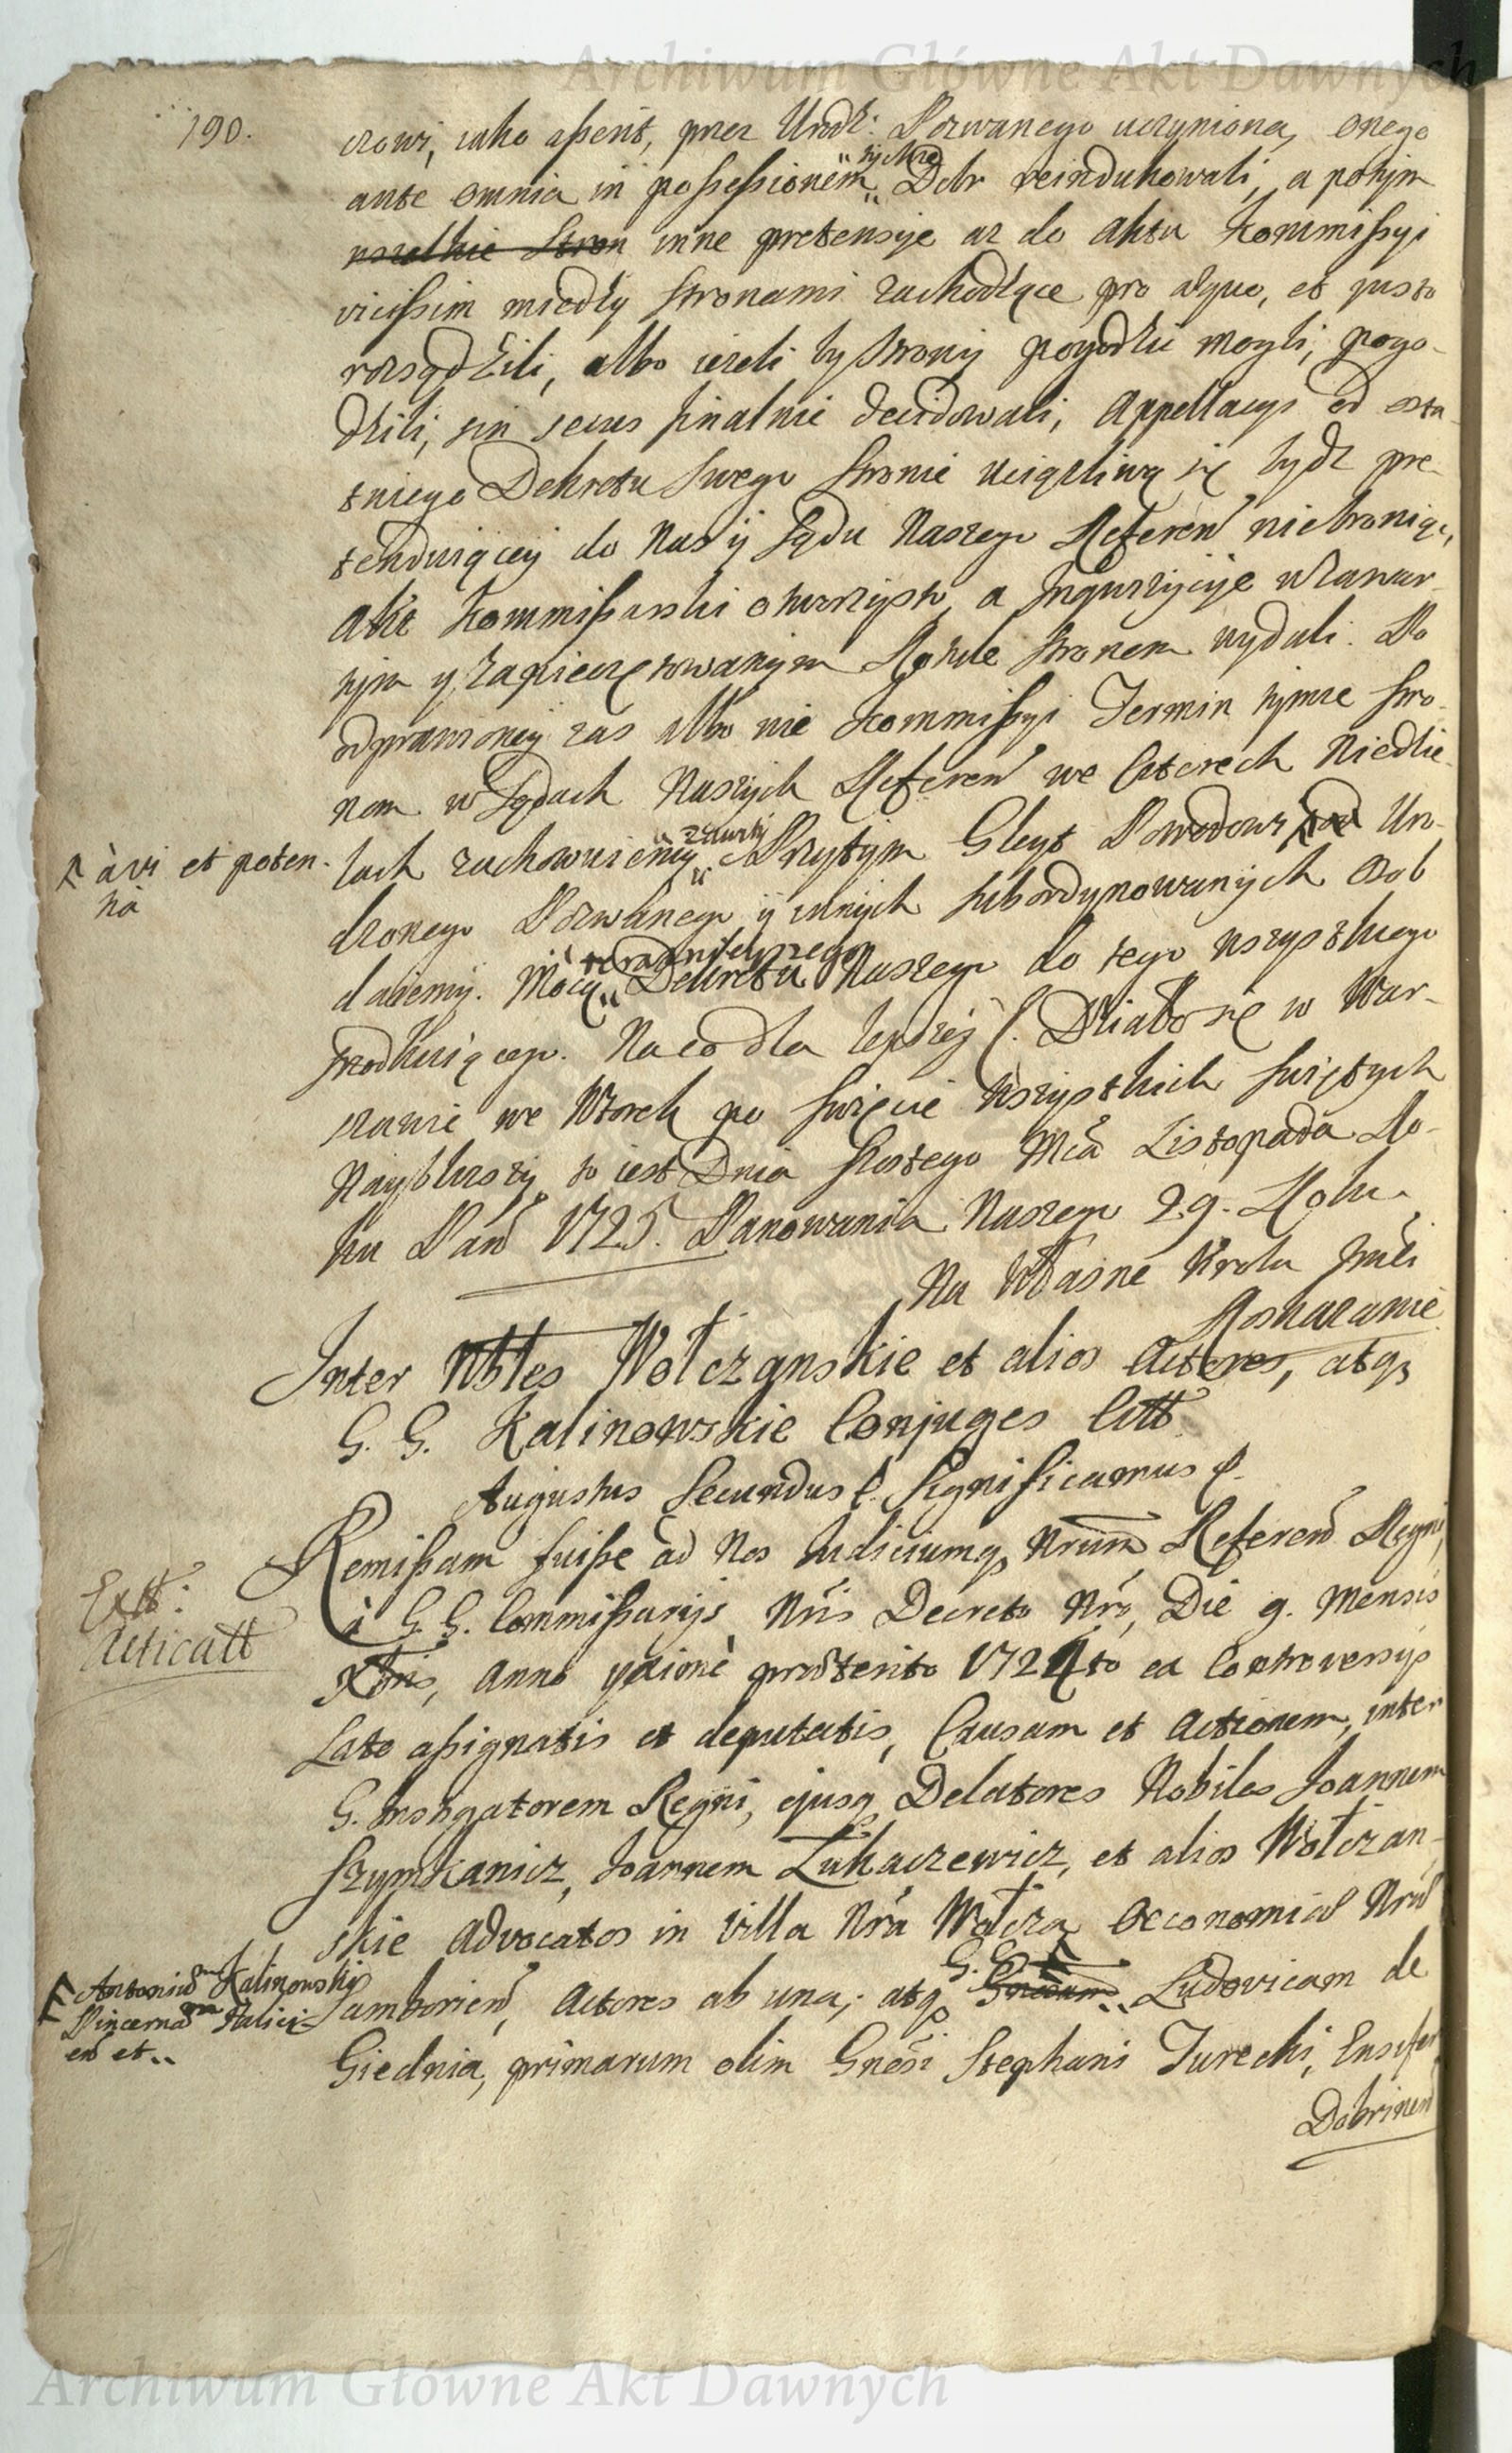 Archiwum Główne Akt Dawnych
190.
czowi, iako aſserit, przez Urodz: Pozwanego uczyniona, onego
ante omnia in poſseſsionem tychze Dobr reindukowali, a potym
wszelkie Stron inne pretensye az do aktu Kommiſsyi
viciſsim między stronami zachodzące pro aequo, et justo
rozsądzili, albo iezeli by strony pogodzić mogli, pogo-
dzili, sin secus finalnie decidowali, Appellacyi od osta-
tniego Dekretu swego stronie uciązliwą się bydz pre-
tenduiącey do Nas y Sądu Naszego Referen niebroniąc,
akt Kommiſsarski otworzysto, a Inquizycyie w zawar-
tym y zapieczętowanym Rotule stronom wydali. Po
odprawioney zas albo nie Kommiſsyi Termin tymze stro-
nom w Sądach Naszych Referen we Czterech Niedzie-
lach zachowuiemy. zawity Przytym Gleyt Powodowi pod Uro-
à vi et poten-
tia
dzonego Pozwanego y innych subordynowanych osob
daiemy. Mocą teraznieyszego Dekretu Naszego do tego wszystkiego
srodkuiącego. Na co dla lepszey &. Działo się w War-
szawie we Wtorek po Swięcie Wszystkich Swiętych
Nayblizszy to iest Dnia Szostego Mca Listopada Ro-
ku Pan 1725. Panowania Naszego 29. Roku.
Na Własne Krola Jmći
Roskazanie
Inter Nbles Wołczanskie et alios Actores, atq
G. G. Kalinowskie Conjuges Citt
Augustus Secundus &. Significamus &.
Remiſsam fuiſse ad Nos Judiciumq Nrum Referend Regni,
Extt:
Acticatt
à G. G. Commiſsarijs Nris Decreto Nro, Die 9. Mensis
Xbris, Anno proximè praeterito 1724to ea Controversijs
Lato aſsignatis et deputatis, Causam et Actionem, inter
G. Instigatorem Regni, ejusq Delatores Nobiles Joannem
Szymkanicz, Joannem Łukaczewicz, et alios Wołczan-
skie Advocatos in Villa Nra Wołcza Oeconomiae Nrae
Samborien, Actores ab una; atq G. G. Gnosam Ludovicam de
Antonium Kalinowski
Pincernam Halici-
en et
Giednia, primarum olim Gnosi Stephani Turecki, Ensifer
Dobrinen
Archiwum Główne Akt Dawnych